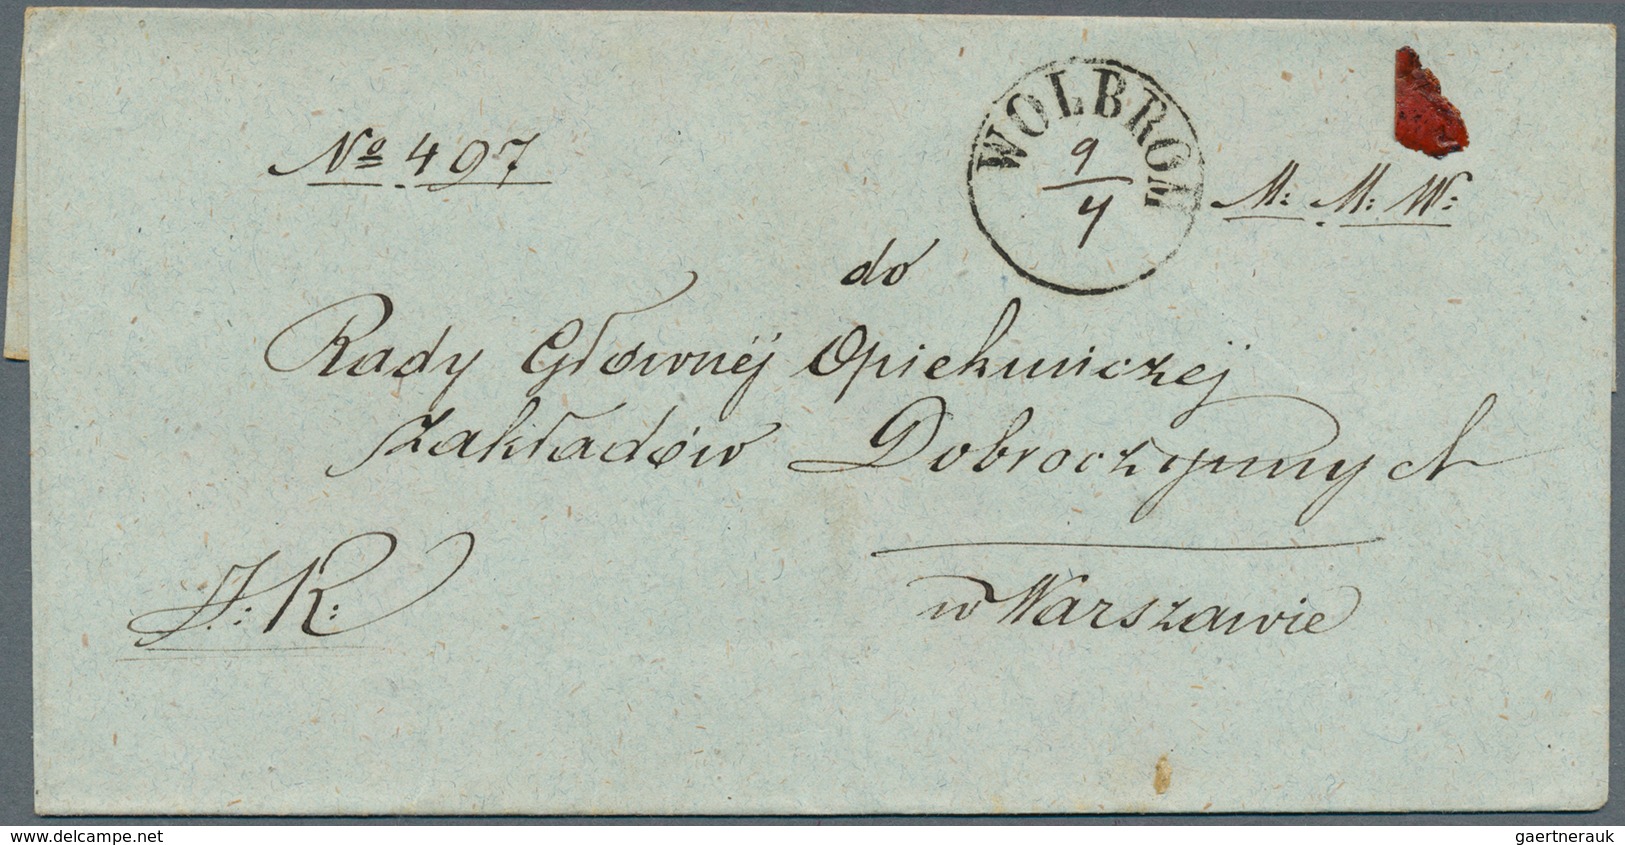 WOLBROM
9/4
№ 497
M: M: W:
do
Rady Głownéj Opiekuńiczéj
Zakładów Dobroczynnych
w Warszawie
J: K:
www.delcampe.net
gaertnerauk